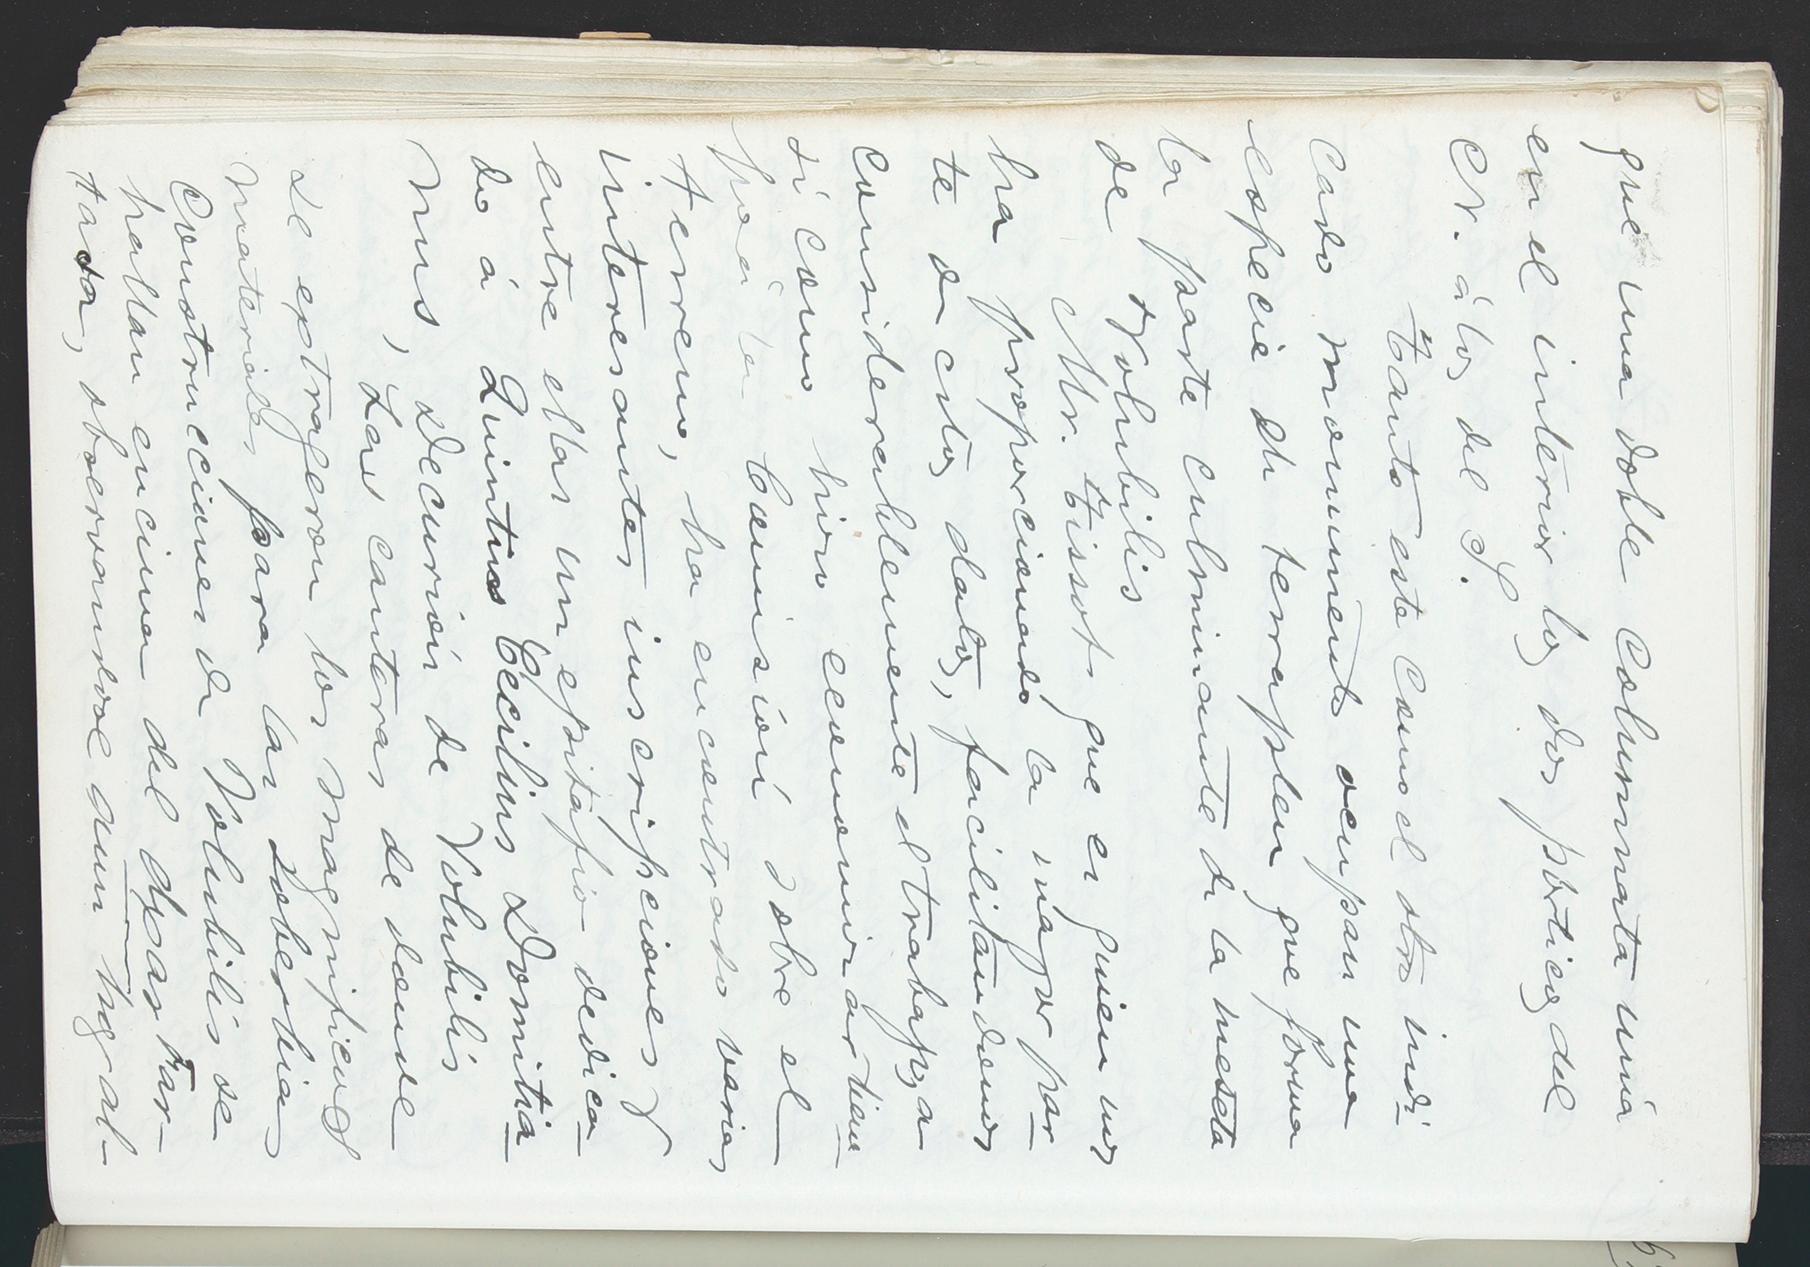 que una doble columnata unia
en el interior los dos pórticos del
N. á los del S.
Tanto este como el otro indi-
cado monumento ocupan una
especie de terraplen que forma
la parte culminante de la meseta
de Volubilis
Mr. Tissot que es quien nos
ha proporcionado la mayor par-
te de estos datos, facilitandonos
considerablemente el trabajo, a
si como hizo economizar tiem-
po á la Comisión sobre el
terreno, ha encontrado varias
interesantes inscripciones y
entre ellas un epitafio dedica-
do á Quintus Cecilius Domitia-
nus, Decurión de Volubilis
Las canteras de donde
se extrageron los magnificos
materiales para las soberbias
construcciones de Volubilis se
hallan encima del Apar Far-
tasa, observandose aun hay al-